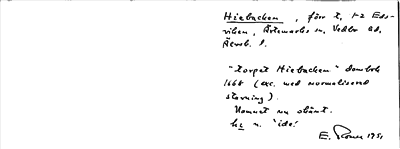 Hiebacken, förr t, 1-2 Eds-
viken, Ärtemarks sn, Vedbo hd,
Älvsb. l.
"torpet Hiebacken" dombok
1668 (exc. med normaliserad
stavning).
Namnet nu okänt.
hi n. 'ide'
E. 1951